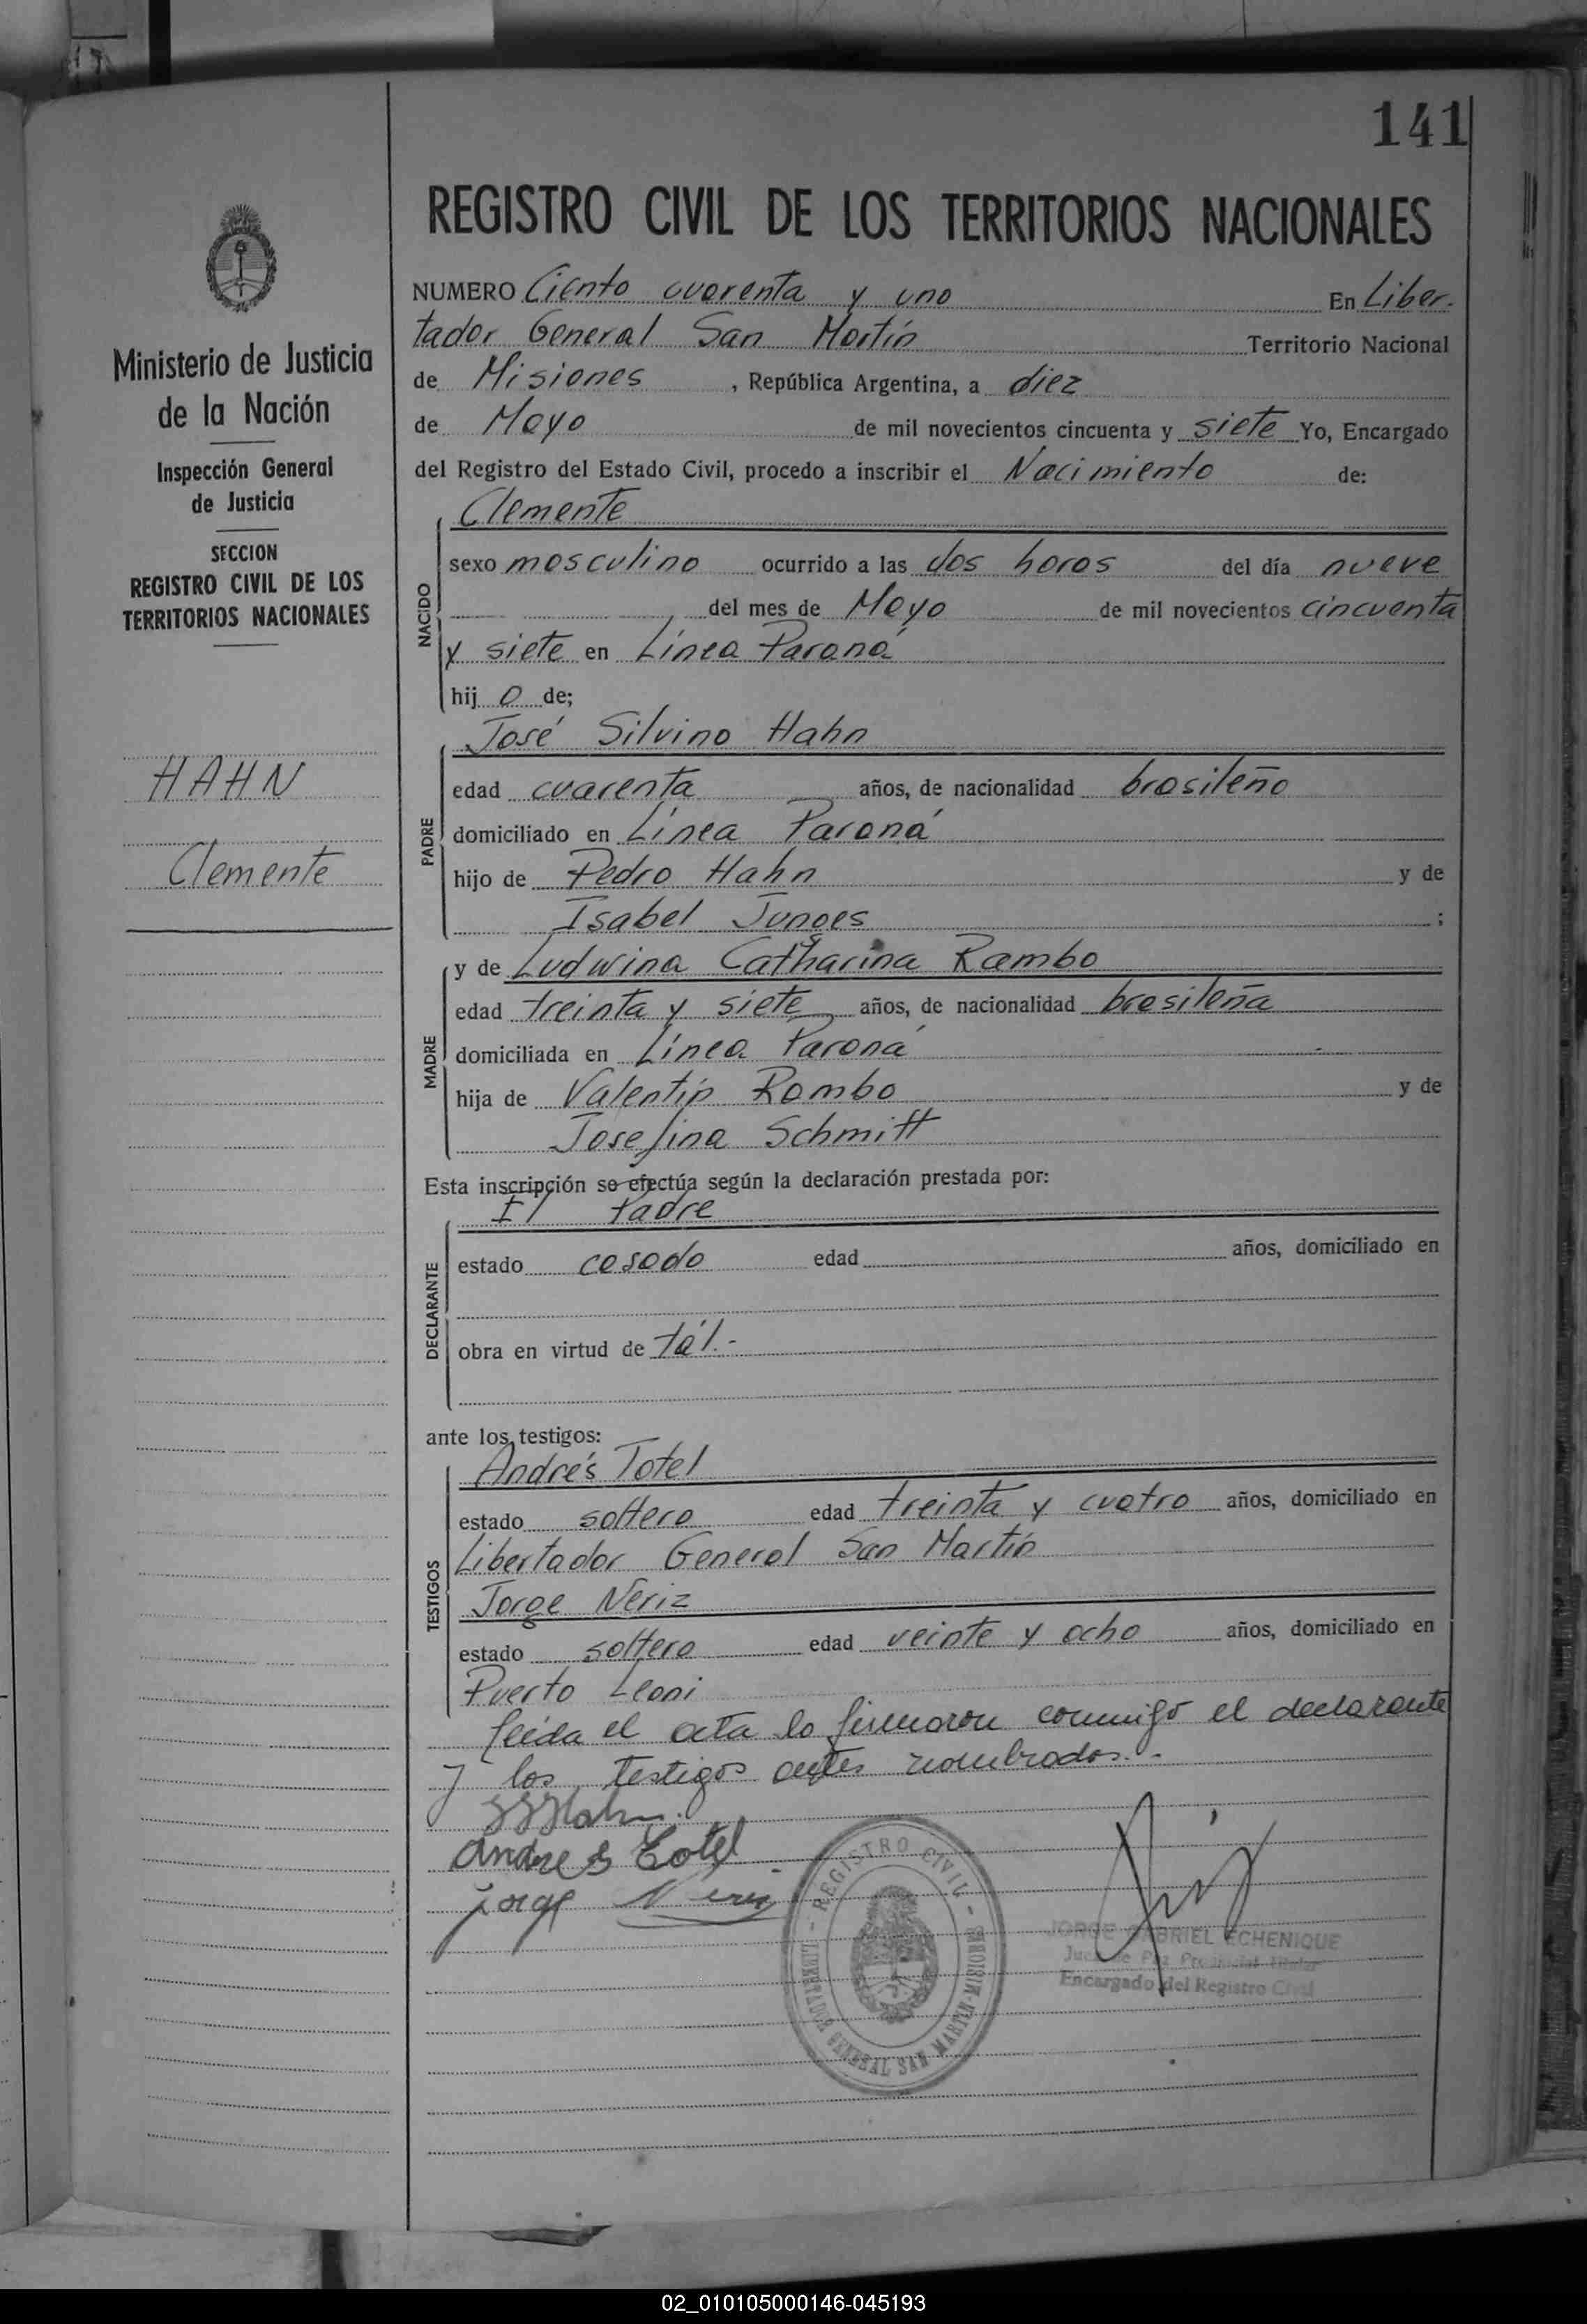 141
REGISTRO CIVIL DE LOS TERRITORIOS NACIONALES
Ministerio de Justicia
de la Nación
Inspección General
de Justicia
SECCION
REGISTRO CIVIL DE LOS
TERRITORIOS NACIONALES
HAHN
Clemente
NUMERO Ciento cuarenta y uno En Liber.
tador General San Martín Territorio Nacional
de Misiones , República Argentina, a diez
de Mayo de mil novecientos cincuenta y siete Yo, Encargado
del Registro del Estado Civil, procedo a inscribir el Nacimiento de:
NACIDO
Clemente
sexo masculino ocurrido a las dos horas del día nueve
del mes de Mayo de mil novecientos cincuenta
y siete en Línea Paraná
hij o de;
PADRE
José Silvino Hahn
edad cuarenta años, de nacionalidad brasileño
domiciliado en Línea Paraná
hijo de Pedro Hahn y de
Isabel Junges ;
MADRE
y de Ludwina Catharina Rambo
edad treinta y siete años, de nacionalidad brasileña
domiciliada en Línea Paraná
hija de Valentín Rambo y de
Josefina Schmitt
Esta inscripción se efectúa según la declaración prestada por:
DECLARANTE
El Padre
estado casado edad años, domiciliado en
obra en virtud de tál.-
ante los testigos:
TESTIGOS
Andrés Totel
estado soltero edad treinta y cuatro años, domiciliado en
Libertador General San Martín
Jorge Neriz
estado soltero edad veinte y ocho años, domiciliado en
Puerto Leoni
leida el acta lo firmaron conmigo el declarante
y los testigos antes nombrados.-
Hahn
Andres Totel
Jorge Neriz
REGISTRO CIVIL - MISIONES - LIBERTADOR GENERAL SAN MARTIN
JORGE GABRIEL ECHENIQUE
Juez de Paz Provincial Titular
Encargado del Registro Civil
02_010105000146-045193